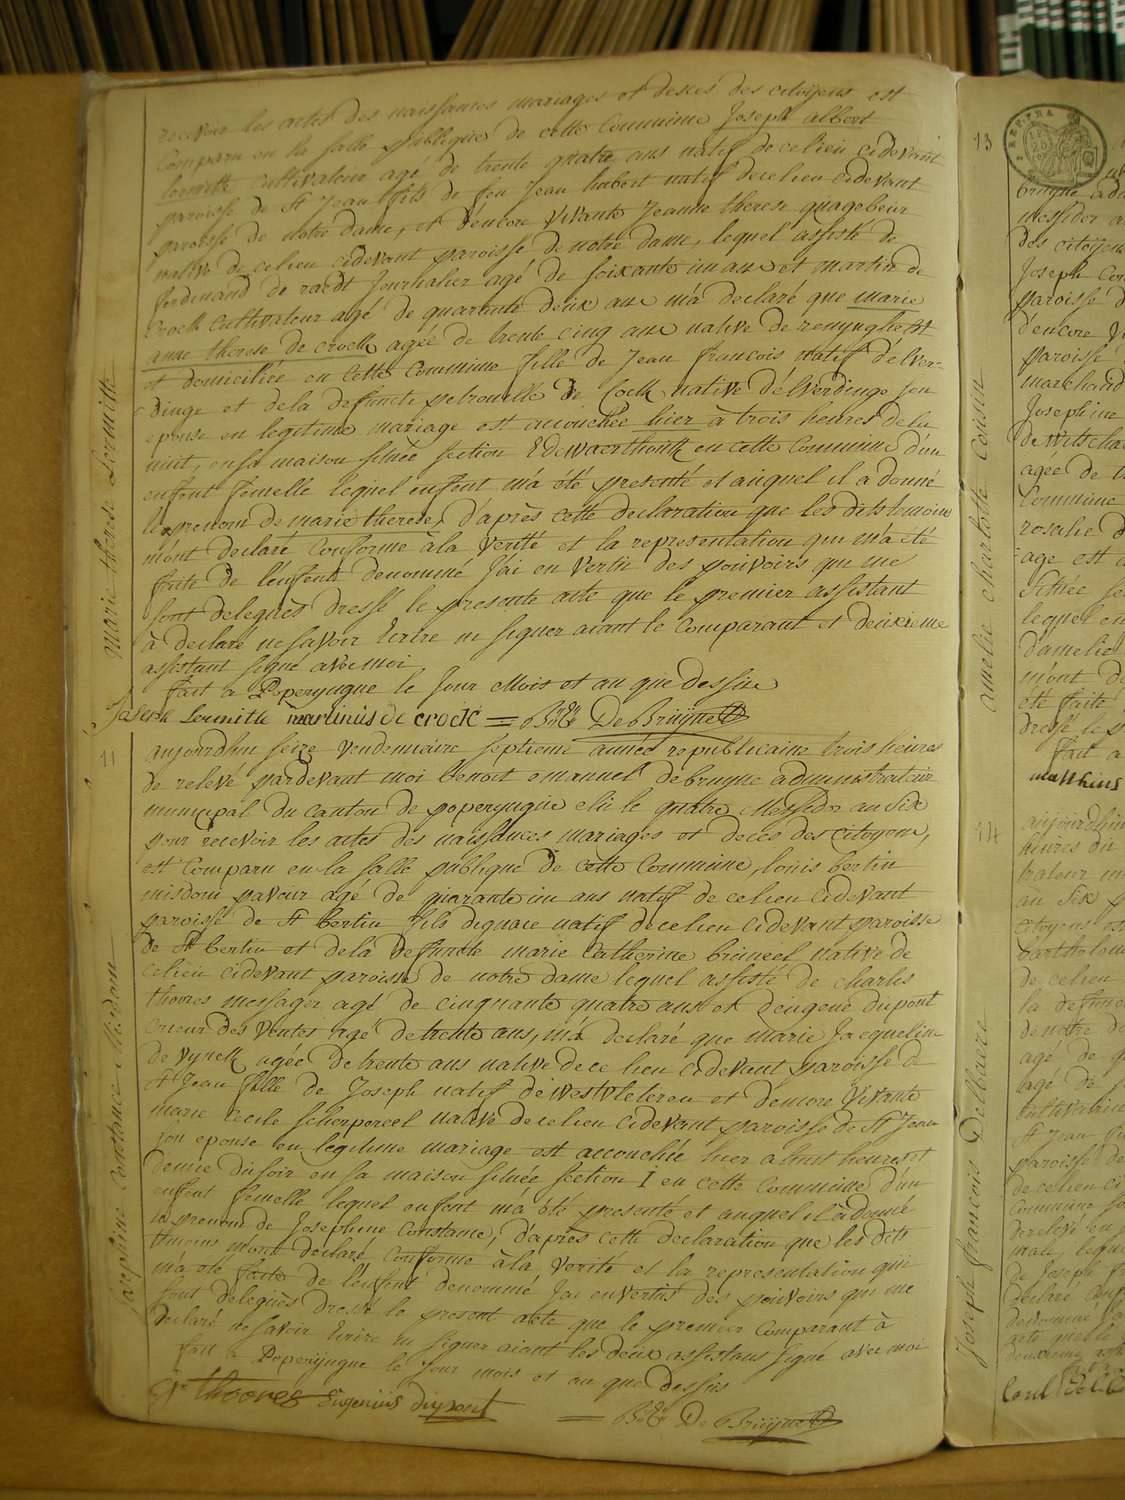 recevoir les actes des naissances mariages et deces des citoÿens est
Comparu en la salle publique de cette Commune Joseph albert
lermitte cultivateur agé de trente quatre ans natif de ce lieu cidevant
paroisse de St Jean fils de feu Jean hubert natif de ce lieu cidevant
paroisse de notre dame, et d'encore vivante Jeanne therese quagebeur
native de ce lieu cidevant paroisse de notre dame, lequel assisté de
ferdinand de raedt Journalier agé de soixante un ans et martin de
Crock cultivateur agé de quarante deux ans m'a declaré que marie
anne therese de crock agée de trente cinq ans native de renÿnghelst
et domiciliée en cette Commune fille de Jean francois natif d'elver-
dinge et de la defuncte petronelle de Cock native d'elverdinge son
epouse en legitime mariage est accouchée hier à trois heures de la
nuit, en sa maison située section E dewaerthouk en cette Commune d'un
enfant femelle lequel enfant m'a été presenté et auquel il a donné
les prenom de marie therese, d'après cette declaration que les dits temoins
m'ont declaré Conforme à la verité et la representation qui m'a été
faite de l'enfant denommé J'ai en vertu des pouvoirs qui me
sont delegués dressé le presente acte que le premier assistant
à declaré ne savoir Ecrire ni signer aiant le Comparant et deuxieme
assistant signé avec moi
fait a Poperÿngue le Jour Mois et an que dessus
Joseph Lermitte martinus de crock = Bt Et De Bruÿne
marie therese Lermitte
11
aujourdhui seize vendemiaire septieme année republicaine trois heures
de relevé pardevant moi benoit emanuel debruyne administrateur
municipal du canton de poperÿngue elu le quatre Messidor an Six
pour recevoir les actes des naissances mariages et deces des citoyens,
est Comparu en la salle publique de cette Commune, louis bertin
misdom paveur agé de quarante un ans natif de ce lieu cidevant
paroisse de St bertin fils d'ignace natif de ce lieu cidevant paroisse
de St bertin et de la defuncte marie Catherine bruneel native de
ce lieu cidevant paroisse de notre dame lequel assisté de charles
thoores messager agé de cinquante quatre ans et d'eugene dupont
crieur des ventes agé de trente ans, m'a declaré que marie Jacqueline
de vynck agée de trente ans native de ce lieu cidevant paroisse de
St Jean fille de Joseph natif de westvleteren et d'encore vivante
marie Cecile scherpereel native de ce lieu cidevant paroisse de St Jean
son epouse en legitime mariage est accouchée hier a huit heures et
demie du soir en sa maison située section I en cette Commune d'un
enfant femelle lequel enfant m'a été presenté et auquel il a donné
les prenom de Josephine Constance, d'après cette declaration que les dits
temoins m'ont declaré Conforme à la verité et la representation qui
m'a été faite de l'enfant denommé J'ai en vertus des pouvoirs qui me
sont delegués dressé le present acte que le premier Comparant à
declaré ne savoir Ecrire ni signer aiant les deux assistans signé avec moi
fait a Poperÿngue le Jour mois et an que dessus
thoores Eugenius dupont = Bt Et De Bruÿne
Josephine Constance Misdom
13
des citoÿens
Joseph
paroisse
d'encore
paroisse
marchand
Josephine
agée de
Commune
rosalie
age est
située
lequel en
d'amelie
m'ont
été faite
fait a
mattheus
amelie charlotte
14
aujourdhui
heures
an Six
citoyens
de ce lieu
la defuncte
de notre
agé de
agé de
St Jean
paroisse
de ce lieu
Commune
Joseph francois Delbaere